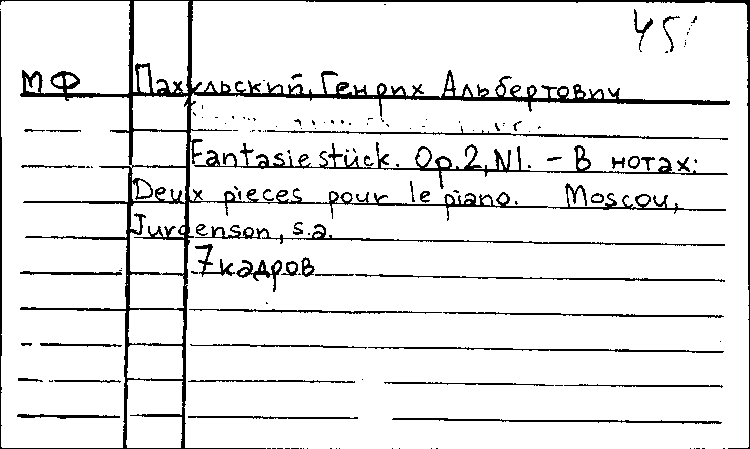 451
МФ Пахульский, Генрих Альбертович
Fantasiestück. Op.2, N1. – В нотах:
Deux pieces pour le piano. Moscou,
Jurgenson, s.a.
7 кадров